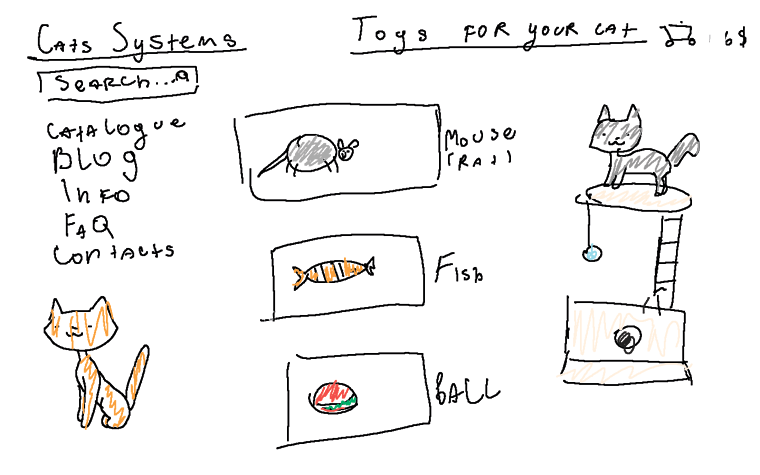 Cats Systems
Toys FOR YOUR CAT
6$
SEARCH...
CATALogue
BLOg
InFO
FAQ
Contacts
Mouse
(RAT)
Fish
BALL